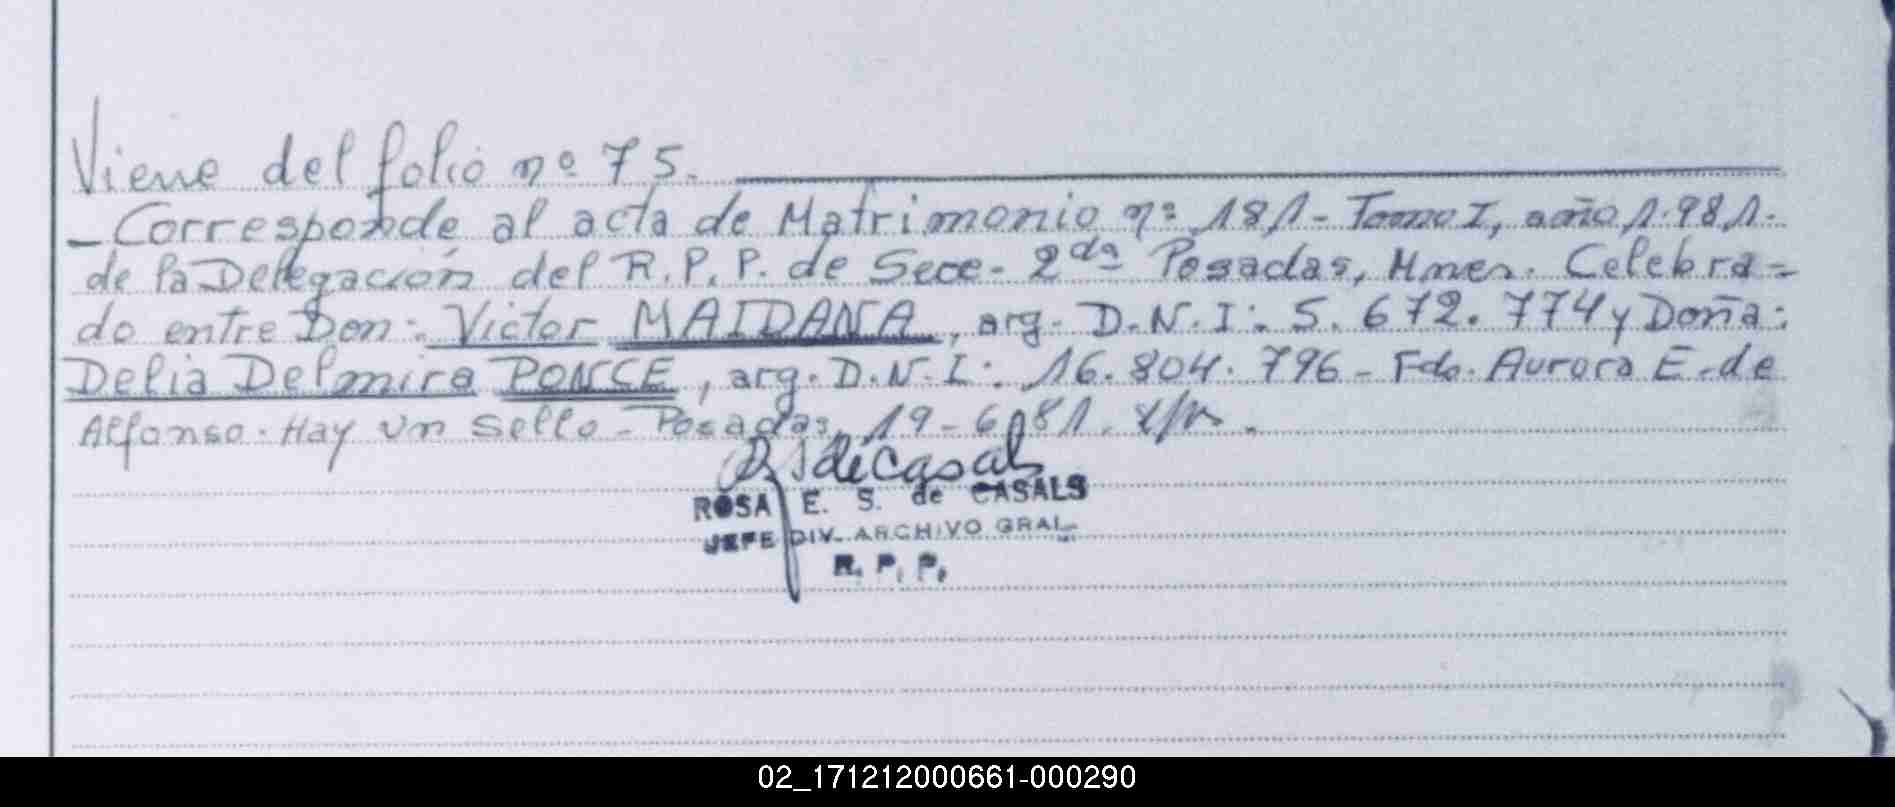 Viene del folio nº 75.
- Corresponde al acta de Matrimonio nº 181 - Tomo I, año 1.981.
de la Delegación del R.P.P. de Secc. 2da Posadas, Mnes. Celebra-
do entre Don: Victor MAIDANA, arg. D.N.I: 5.672.774 y Doña:
Delia Delmira PONCE, arg. D.N.I: 16.804.796 - Fdo. Aurora E. de
Alfonso. Hay un sello - Posadas, 19-6-81.
ROSA E. S. de CASALS
JEFE DIV. ARCHIVO GRAL.
R. P. P.
02_171212000661-000290